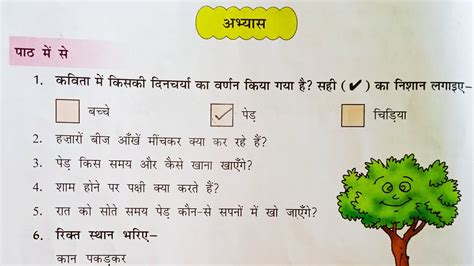 अभ्यास
पाठ में से
1. कविता में किसकी दिनचर्या का वर्णन किया गया है? सही (✔) का निशान लगाइए–
बच्चे ✓ पेड़ चिड़िया
2. हज़ारों बीज आँखें मींचकर क्या कर रहे हैं?
3. पेड़ किस समय और कैसे खाना खाएँगे?
4. शाम होने पर पक्षी क्या करते हैं?
5. रात को सोते समय पेड़ कौन-से सपनों में खो जाएँगे?
6. रिक्त स्थान भरिए–
कान पकड़कर